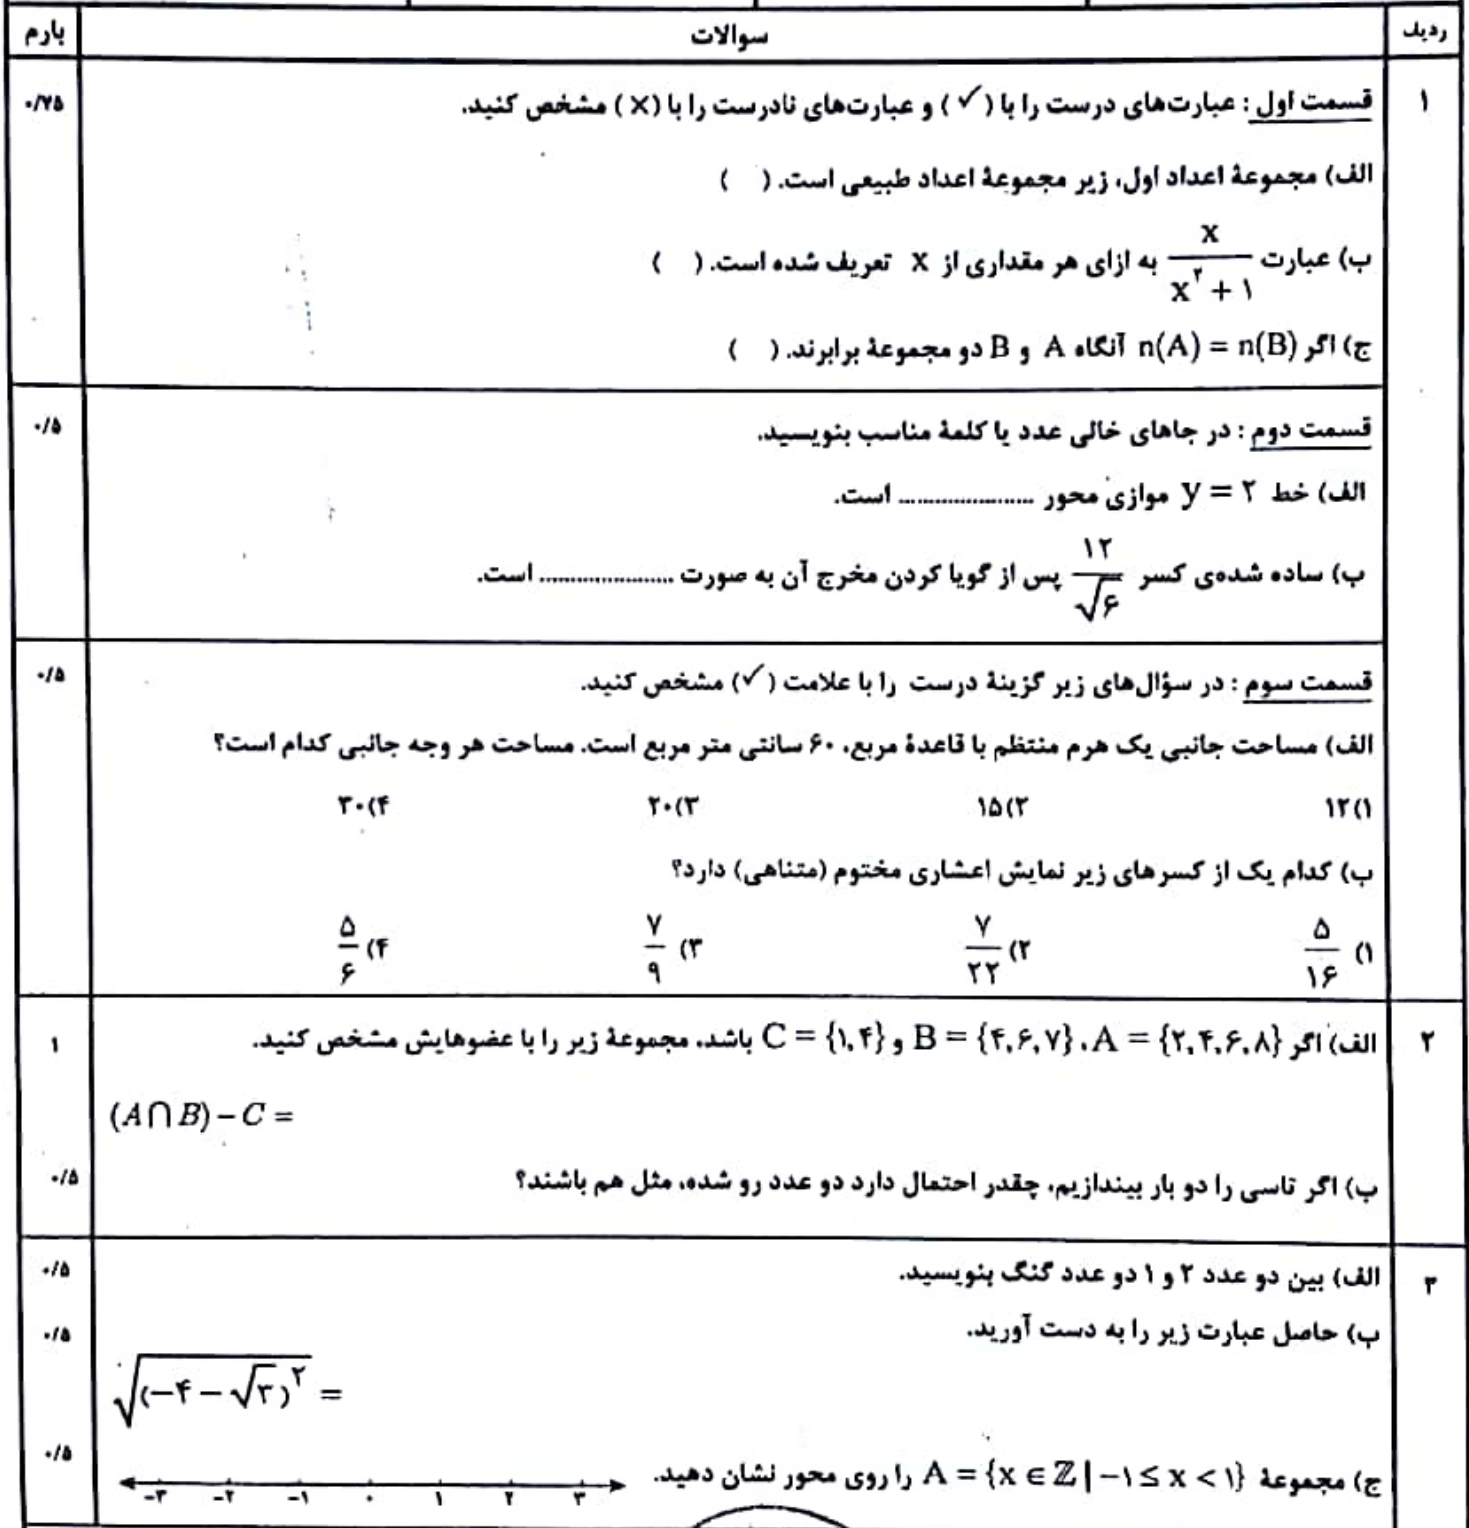 ردیف سوالات بارم
۱ قسمت اول : عبارت‌های درست را با (✓) و عبارت‌های نادرست را با (×) مشخص کنید. ۰/۷۵
الف) مجموعهٔ اعداد اول، زیر مجموعهٔ اعداد طبیعی است. ( )
ب) عبارت x/(x^۲ + ۱) به ازای هر مقداری از x تعریف شده است. ( )
ج) اگر n(A) = n(B) آنگاه A و B دو مجموعهٔ برابرند. ( )
قسمت دوم : در جاهای خالی عدد یا کلمهٔ مناسب بنویسید. ۰/۵
الف) خط y = ۲ موازی محور ...................... است.
ب) ساده شده‌ی کسر ۱۲/√۶ پس از گویا کردن مخرج آن به صورت ...................... است.
قسمت سوم : در سؤال‌های زیر گزینهٔ درست را با علامت (✓) مشخص کنید. ۰/۵
الف) مساحت جانبی یک هرم منتظم با قاعدهٔ مربع، ۶۰ سانتی متر مربع است. مساحت هر وجه جانبی کدام است؟
۱) ۱۲ ۲) ۱۵ ۳) ۲۰ ۴) ۳۰
ب) کدام یک از کسرهای زیر نمایش اعشاری مختوم (متناهی) دارد؟
۱) ۵/۱۶ ۲) ۷/۲۲ ۳) ۷/۹ ۴) ۵/۶
۲ الف) اگر A = {۲,۴,۶,۸} ، B = {۴,۶,۷} و C = {۱,۴} باشد، مجموعهٔ زیر را با عضوهایش مشخص کنید. ۱
(A∩B) – C =
ب) اگر تاسی را دو بار بیندازیم، چقدر احتمال دارد دو عدد رو شده، مثل هم باشند؟ ۰/۵
۳ الف) بین دو عدد ۲ و ۱ دو عدد گنگ بنویسید. ۰/۵
ب) حاصل عبارت زیر را به دست آورید. ۰/۵
√(–۴ – √۳)^۲ =
ج) مجموعهٔ A = {x ∈ ℤ | –۱ ≤ x < ۱} را روی محور نشان دهید. ۰/۵
–۳ –۲ –۱ ۰ ۱ ۲ ۳